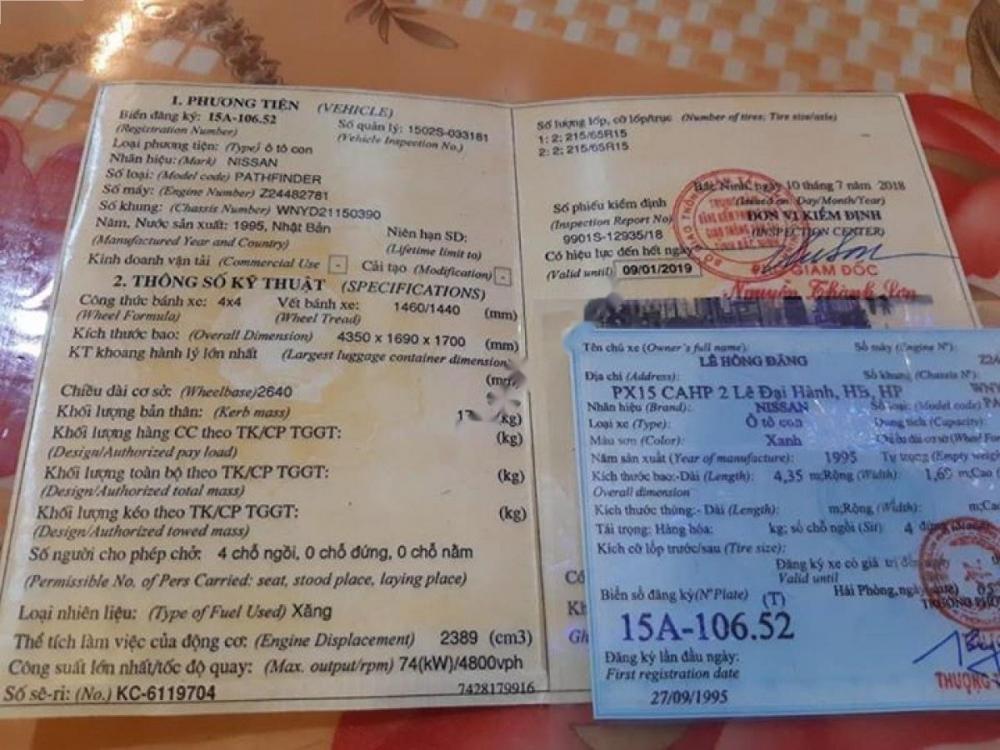 1. PHƯƠNG TIỆN (VEHICLE)
Biển đăng ký: 15A-106.52
(Registration Number)
Số quản lý: 1502S-033181
(Vehicle Inspection No.)
Loại phương tiện: (Type) ô tô con
Nhãn hiệu: (Mark) NISSAN
Số loại: (Model code) PATHFINDER
Số máy: (Engine Number) Z24482781
Số khung: (Chassis Number) WNYD21150390
Năm, Nước sản xuất: 1995, Nhật Bản
(Manufactured Year and Country)
Niên hạn SD:
(Lifetime limit to)
Kinh doanh vận tải (Commercial Use - Cải tạo (Modification) -
2. THÔNG SỐ KỸ THUẬT (SPECIFICATIONS)
Công thức bánh xe: 4x4 Vết bánh xe: 1460/1440 (mm)
(Wheel Formula) (Wheel Tread)
Kích thước bao: (Overall Dimension) 4350 x 1690 x 1700 (mm)
KT khoang hành lý lớn nhất (Largest luggage container dimension
(mm)
Chiều dài cơ sở: (Wheelbase) 2640
Khối lượng bản thân: (Kerb mass) kg)
Khối lượng hàng CC theo TK/CP TGGT: (kg)
(Design/Authorized pay load)
Khối lượng toàn bộ theo TK/CP TGGT: (kg)
(Design/Authorized total mass)
Khối lượng kéo theo TK/CP TGGT: (kg)
(Design/Authorized towed mass)
Số người cho phép chở: 4 chỗ ngồi, 0 chỗ đứng, 0 chỗ nằm
(Permissible No. of Pers Carried: seat, stood place, laying place)
Loại nhiên liệu: (Type of Fuel Used) Xăng
Thể tích làm việc của động cơ: (Engine Displacement) 2389 (cm3)
Công suất lớn nhất/tốc độ quay: (Max. output/rpm) 74(kW)/4800vph
Số sê-ri: (No.) KC-6119704 7428179916
Số lượng lốp, cỡ lốp/trục (Number of tires; Tire size/axle)
1: 2; 215/65R15
2: 2; 215/65R15
Bắc Ninh, ngày 10 tháng 7 năm 2018
(Issued on Day/Month/Year)
Số phiếu kiểm định
(Inspection Report No)
9901S-12935/18
ĐƠN VỊ KIỂM ĐỊNH
(INSPECTION CENTER)
Có hiệu lực đến hết ngày
(Valid until) 09/01/2019
GIÁM ĐỐC
Nguyễn Thành Sơn
Tên chủ xe (Owner's full name): Số máy (Engine N°):
LÊ HỒNG ĐĂNG
Địa chỉ (Address): Số khung (Chassis N°):
PX15 CAHP 2 Lê Đại Hành, HB, HP
Nhãn hiệu (Brand): NISSAN Số loại: (Model code)
Loại xe (Type): Ô tô con Dung tích (Capacity):
Màu sơn (Color): Xanh
Năm sản xuất (Year of manufacture): 1995 Tự trọng (Empty
Kích thước bao:-Dài (Length): 4,35 m;Rộng (Width): 1,69 m;Cao
Overall dimension
Kích thước thùng:- Dài (Length): m;Rộng (Width):
Tải trọng: Hàng hóa: kg; số chỗ ngồi (Sit) 4
Kích cỡ lốp trước/sau (Tire size):
Đăng ký xe có giá trị đến
Valid until
Biển số đăng ký(N°Plate) (T) Hải Phòng,
15A-106.52
Đăng ký lần đầu ngày:
First registration date
27/09/1995
THƯỢNG